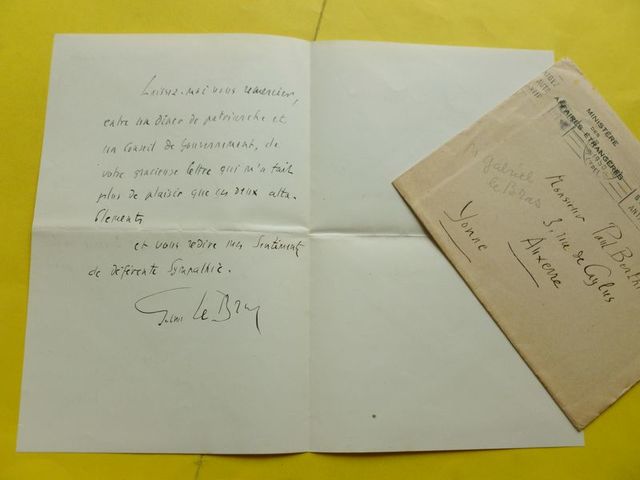 Laissez-moi vous remercier,
entre un dîner de patriarche et
un Conseil de Gouvernement, de
votre gracieuse lettre qui m'a fait
plus de plaisir que ces deux atta-
blements
et vous redire mes sentiments
de déférente sympathie.
Le Bras
MINISTÈRE
DES
AFFAIRES-ÉTRANGÈRES
Gabriel
le Bras
Monsieur Paul Berth
3, rue de Caylus
Auxerre
Yonne